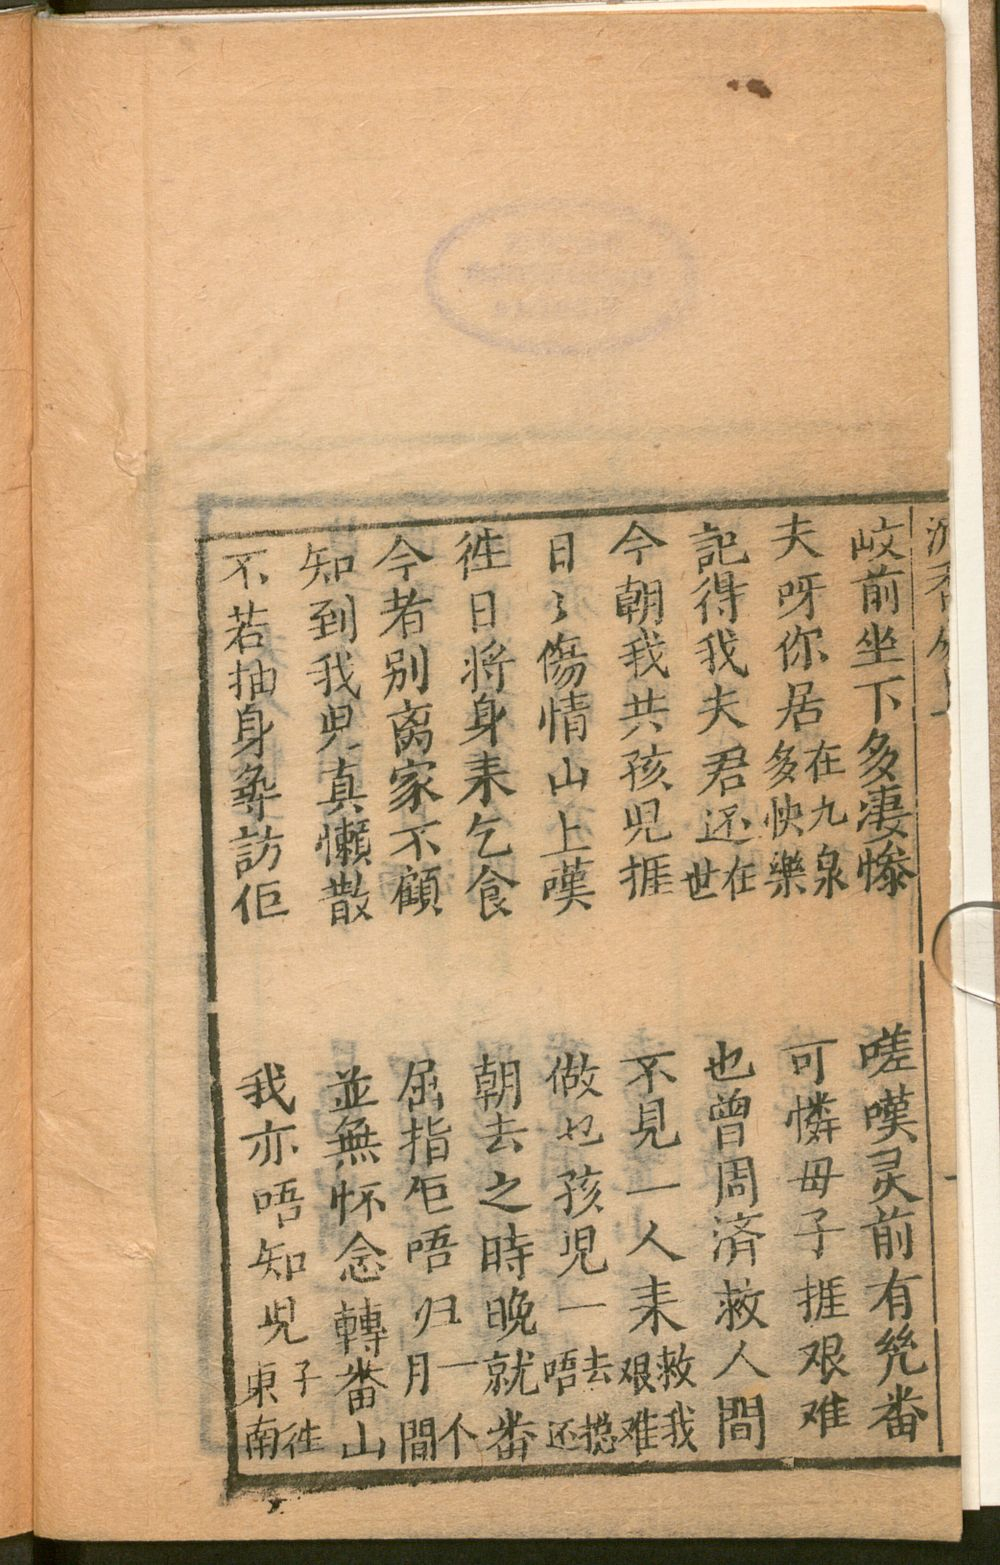 岐前坐下多凄惨　嗟嘆灵前有㡬畨
夫呀你居在九泉多快樂　可憐毋子捱艰难
記得我夫君还在世　也曾周済救人間
今朝我共孩児捱　不見一人耒救我艰难
日〻傷情山上嘆　做乜孩児一去捴唔还
徃日将身耒乞食　朝去之時晚就畨
今者别离家不顧　屈指佢唔归一个月間
知到我児真懶散　並無怀念轉畨山
不若抽身尋訪佢　我亦唔知児子徃東南